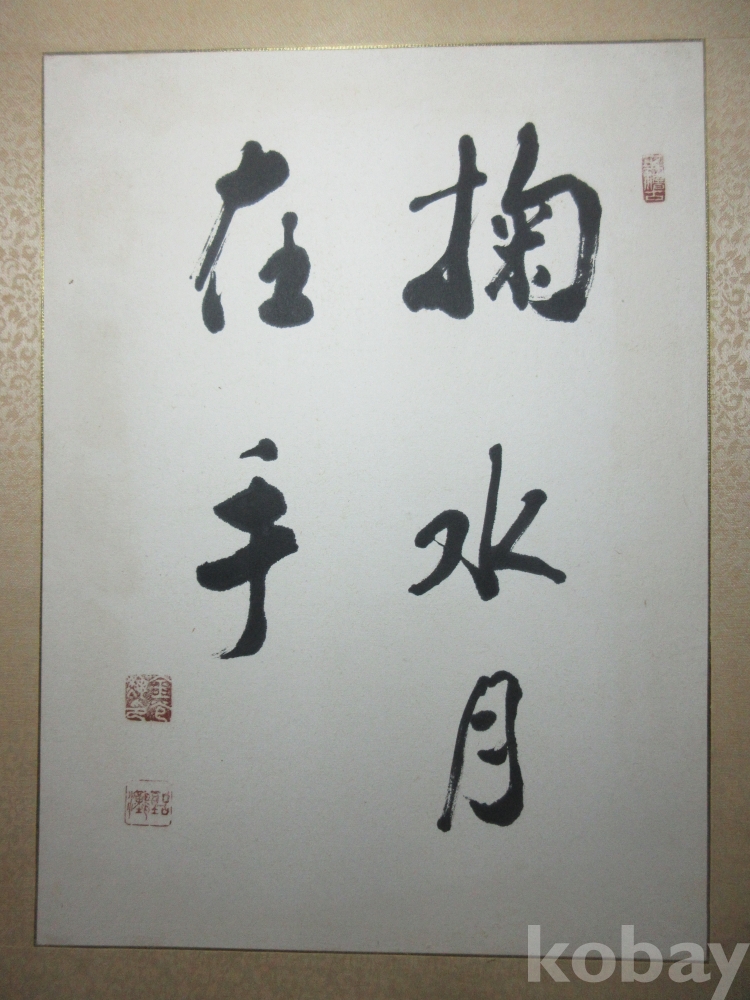 掬水月
在手
kobay